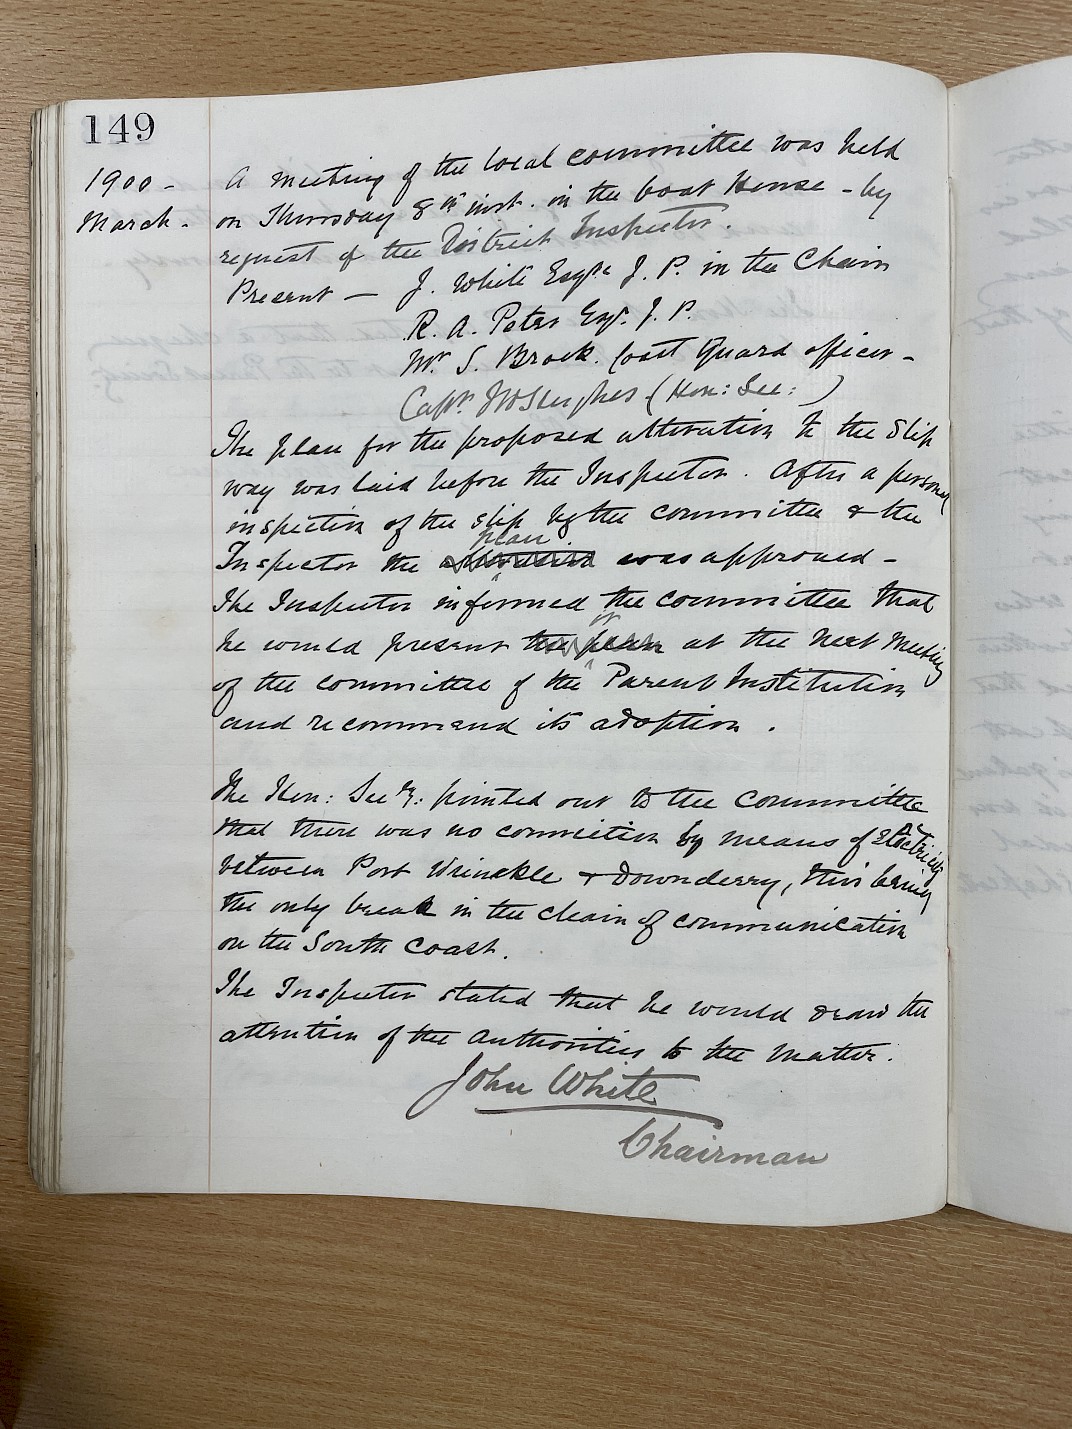 149
1900 -
March -
A meeting of the local committee was held
on Thursday 8th inst. in the boat House - by
request of the District Inspector.
Present — J. White Esqre J. P. in the Chair
R. A. Peter Esqr. J. P.
Mr S. Brock. Coast Guard officer -
Captn Hughes (Hon: Sec: )
The plan for the proposed alteration to the Slip
way was laid before the Inspector. After a personal
inspection of the slip by the committee & the
plan
Inspector the alteration was approved -
The Inspector informed the committee that
it
he would present the plan at the next Meeting
of the committee of the Parent Institution
and recommend its adoption .
The Hon: Secy: pointed out to the Committee
that there was no connection by means of Electricity
between Port Wrinkle & Downderry, this being
the only break in the chain of communication
on the South Coast.
The Inspector stated that he would draw the
attention of the Authorities to the matter.
John White
Chairman